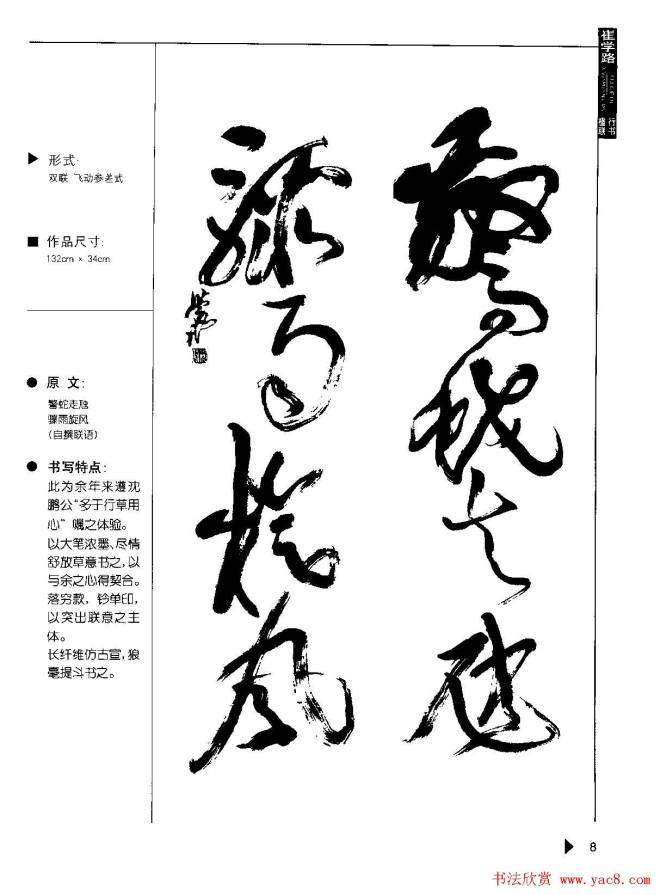 崔学路
行书
楹联
▶ 形式:
双联 飞动参差式
■ 作品尺寸:
132cm × 34cm
● 原文:
惊蛇走虺
骤雨旋风
(自撰联语)
● 书写特点:
此为余年来遵沈
鹏公“多于行草用
心”嘱之体验。
以大笔浓墨、尽情
舒放草意书之,以
与余之心得契合。
落穷款,钤单印,
以突出联意之主
体。
长纤维仿古宣,狼
毫提斗书之。
8
书法欣赏 www.yac8.com